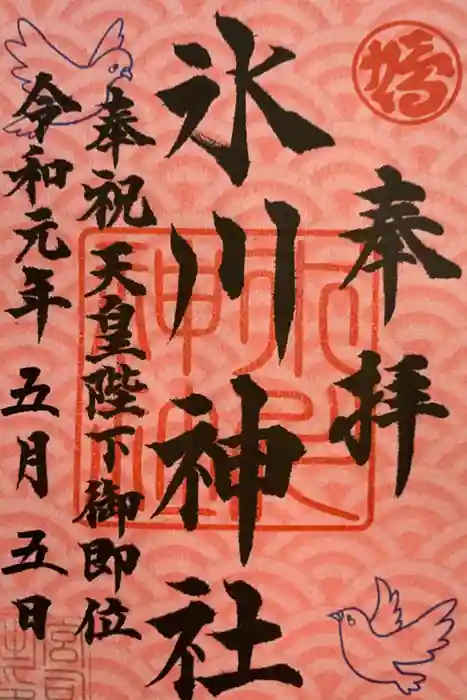 奉拝
氷川神社
奉祝天皇陛下御即位
令和元年五月五日
氷川神社